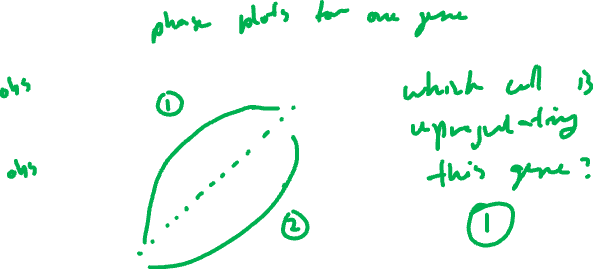 phase plots for one gene
obs
①
which cell is
upregulating
this gene?
obs
②
①